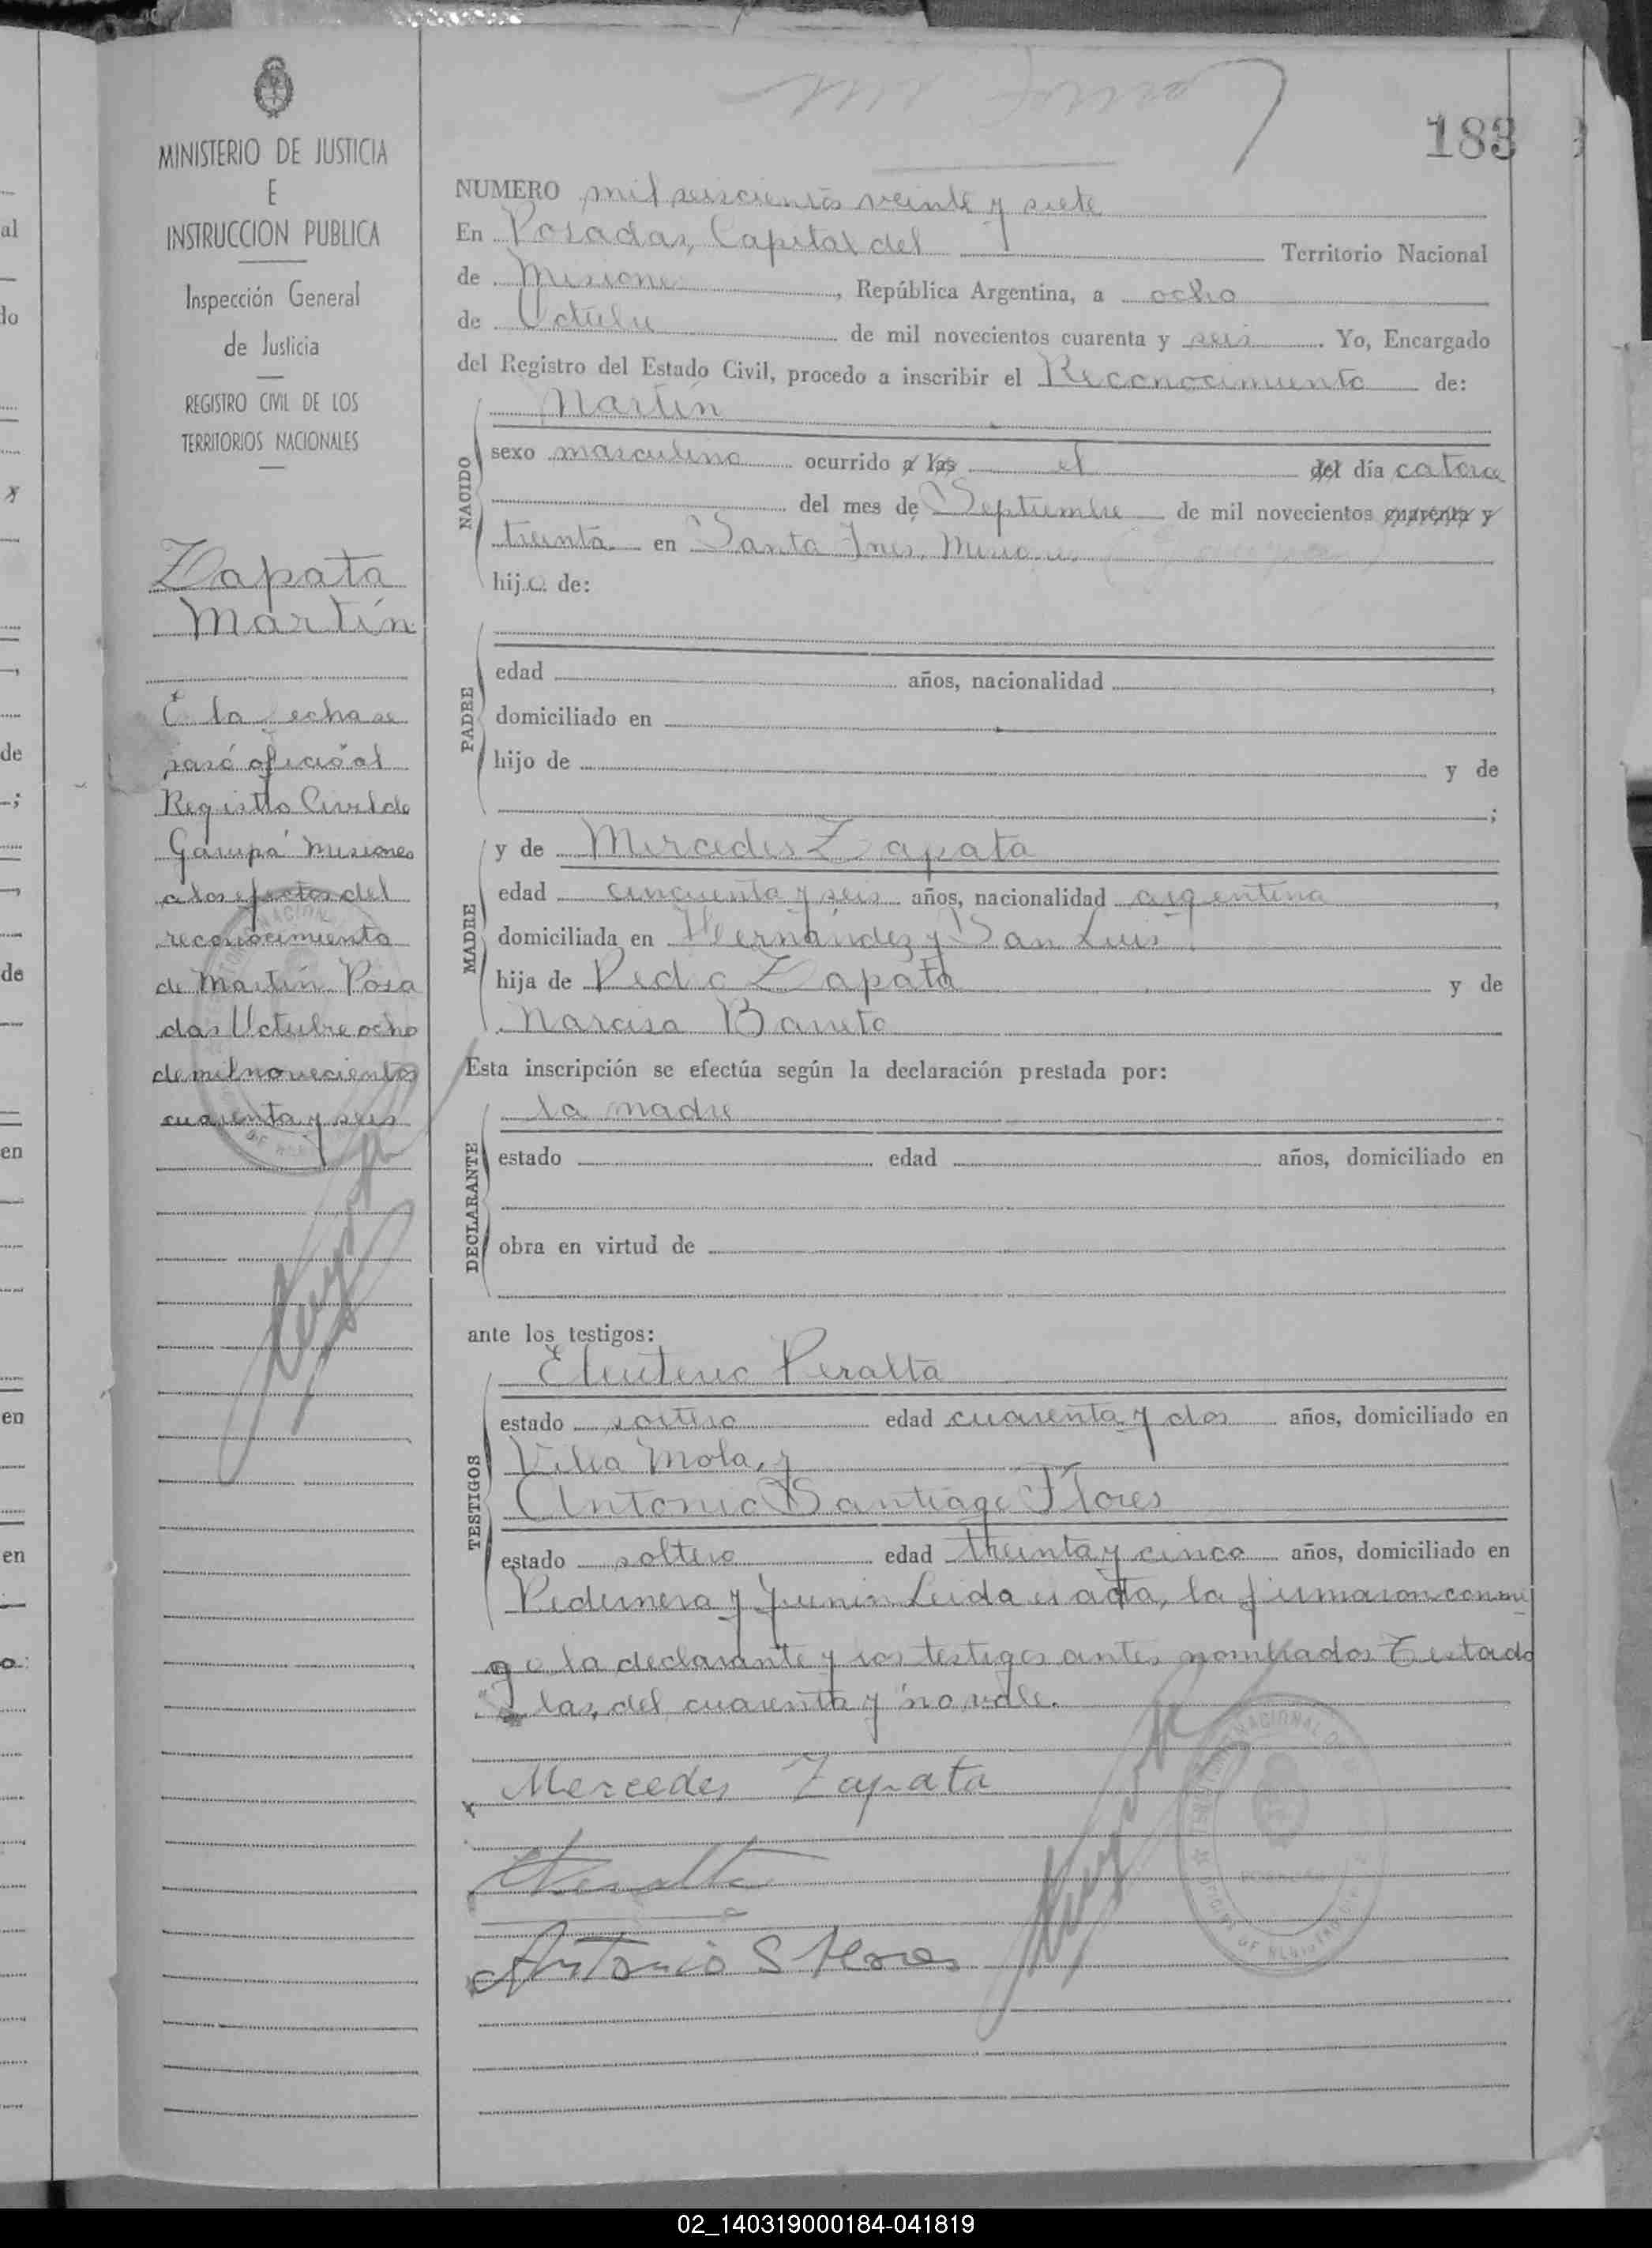 MINISTERIO DE JUSTICIA
E
INSTRUCCION PUBLICA
Inspección General
de Justicia
REGISTRO CIVIL DE LOS
TERRITORIOS NACIONALES
Zapata
Martín
la echa se
pasó oficio al
Registro Civil de
Garupá Misiones
a los efectos del
reconocimiento
de Martín Posa
das Octubre ocho
de mil novecientos
cuarenta y seis
183
NUMERO mil seiscientos veinte y siete
En Posadas, Capital del Territorio Nacional
de Misiones, República Argentina, a ocho
de Octubre de mil novecientos cuarenta y seis. Yo, Encargado
del Registro del Estado Civil, procedo a inscribir el Reconocimiento de:
NACIDO
Martín
sexo masculino ocurrido a las el del día catorce
del mes de Septiembre de mil novecientos cuarenta y
treinta en Santa Ines, Misiones
hijo de:
PADRE
edad años, nacionalidad ,
domiciliado en
hijo de y de
;
MADRE
y de Mercedes Zapata
edad cincuenta y seis años, nacionalidad argentina,
domiciliada en Hernández y San Luis
hija de Pedro Zapata y de
Narcisa Barreto
Esta inscripción se efectúa según la declaración prestada por:
DECLARANTE
la madre
estado edad años, domiciliado en
obra en virtud de
ante los testigos:
TESTIGOS
Eleuterio Peralta
estado soltero edad cuarenta y dos años, domiciliado en
Villa Mola, y
Antonio Santiago Flores
estado soltero edad treinta y cinco años, domiciliado en
Pedernera y Junin Leida el acta, la firmaron conmi
go la declarante y los testigos antes nombrados Testado
"a las, del cuarenta y" no vale.
Mercedes Zapata
Peralta
Antonio S Flores
02_140319000184-041819